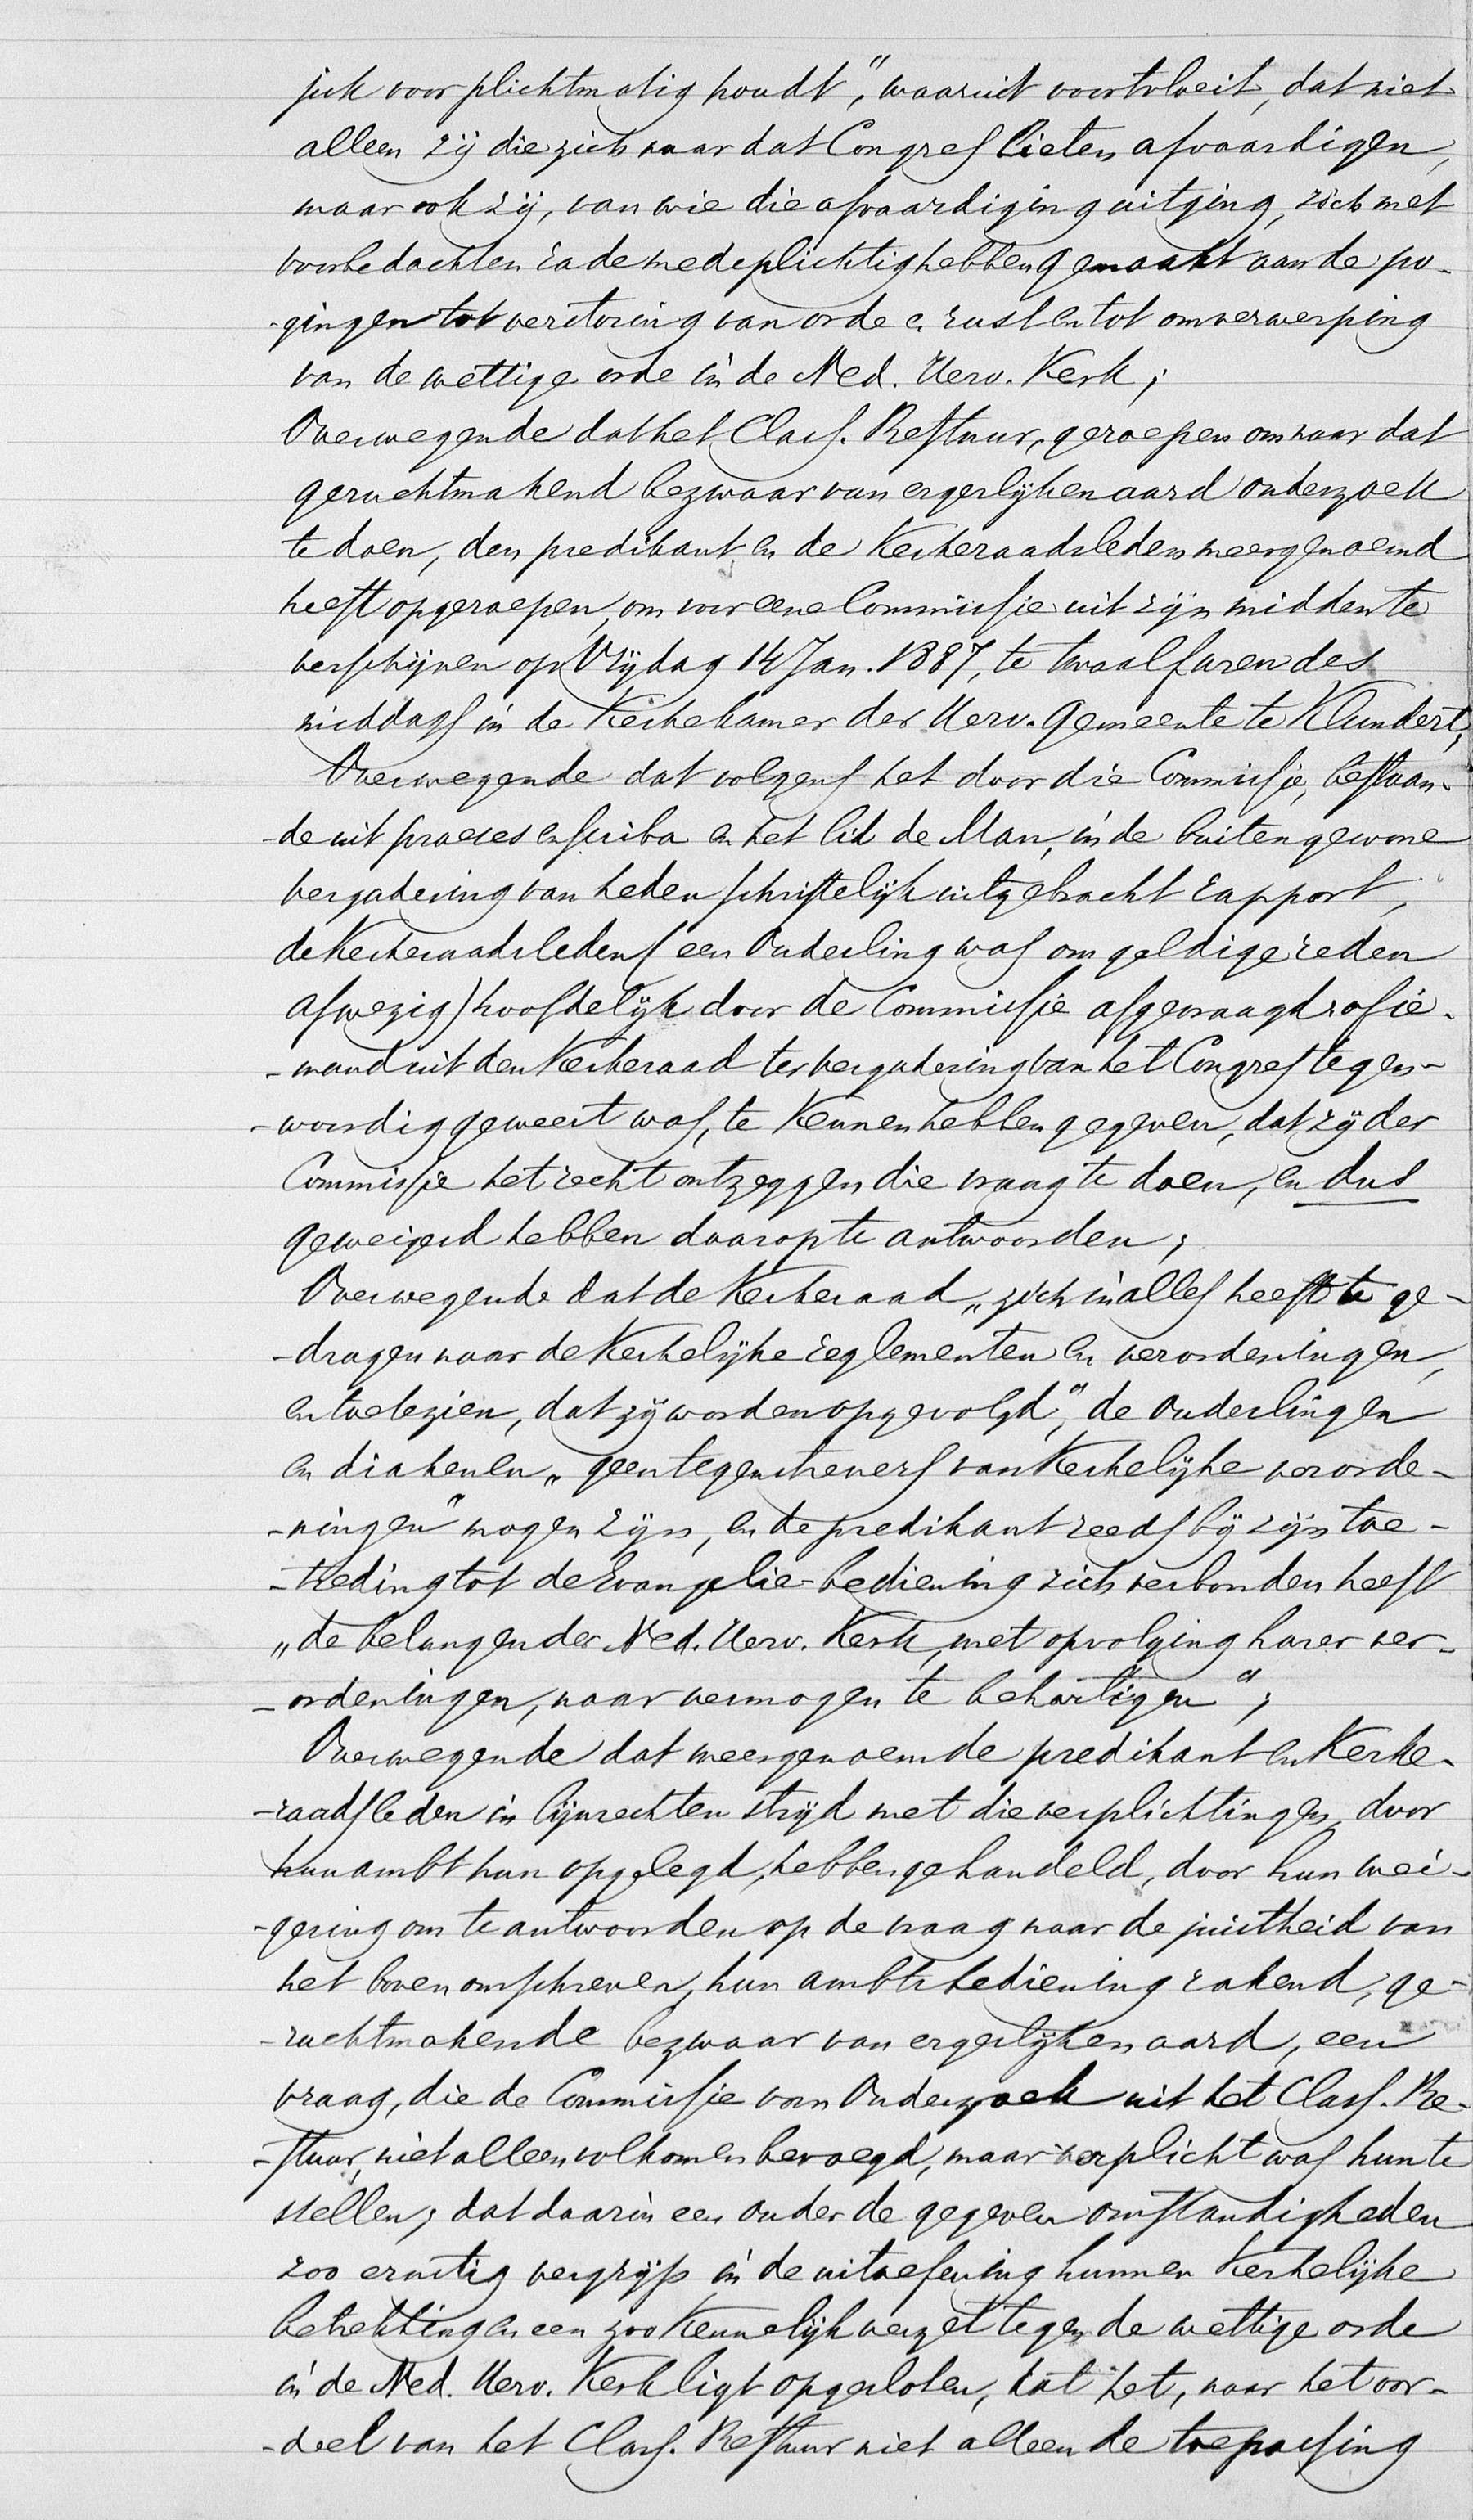 juk voor plichtmatig houdt", waaruit voortvloeit, dat niet
alleen zij die zich naar dat Congres lieten afvaardigen,
maar ook zij, van wie die afvaardiging uitging, zich met
voorbedachten rade medeplichtig hebben gemaakt aan de po-
-gingen tot verstoring van orde en rust en tot omverwerping
van de wettige orde in de Ned. Herv. Kerk;
Overwegende dat het Class. Bestuur, geroepen om naar dat
geruchtmakend bezwaar van ergerlijken aard onderzoek
te doen, den predikant en de Kerkeraadsleden meergenoemd
heeft opgeroepen, om voor eene Commissie uit zijn midden te
verschijnen op Vrijdag 14 Jan. 1887, te twaalf uren des
middags in de Kerkekamer der Herv. Gemeente te Klundert;
Overwegende dat volgens het door die Commissie, bestaan-
-de uit praeses en scriba en het lid de Man, in de buitengewone
vergadering van heden schriftelijk uitgebracht rapport,
de Kerkeraadsleden (een Ouderling was om geldige reden
afwezig) hoofdelijk door de Commissie afgevraagd, of ie-
-mand uit den Kerkeraad ter vergadering van het Congres tegen-
-woordig geweest was, te Kennen hebben gegeven, dat zij der
Commissie het recht ontzeggen die vraag te doen, en dus
geweigerd hebben daarop te antwoorden;
Overwegende dat de Kerkeraad „zich in alles heeft te ge-
-dragen naar de Kerkelijke reglementen en verordeningen,
en toe te zien, dat zij worden opgevolgd", de Ouderlingen
en diakenen „geen tegenstrevers van Kerkelijke verorde-
-ningen" mogen zijn, en de predikant reeds bij zijn toe-
-treding tot de Evangelie-bediening zich verbonden heeft
„de belangen der Ned. Herv. Kerk, met opvolging harer ver-
-ordeningen, naar vermogen te behartigen";
Overwegende dat meergenoemde predikant en Kerke-
-raadsleden in lijnrechten strijd met die verplichtingen, door
hun ambt hun opgelegd, hebben gehandeld, door hun wei-
-gering om te antwoorden op de vraag naar de juistheid van
het boven omschreven, hun ambtsbediening rakend, ge-
-ruchtmakende bezwaar van ergerlijken aard, een
vraag, die de Commissie van Onderzoek uit het Class. Be-
-stuur, niet alleen volkomen bevoegd, maar verplicht was hun te
stellen; dat daarin een onder de gegeven omstandigheden
zoo ernstig vergrijp in de uitoefening hunner Kerkelijke
betrekking en een zoo Kennelijk verzet tegen de wettige orde
in de Ned. Herv. Kerk ligt opgesloten, dat het, naar het oor-
-deel van het Class. Bestuur niet alleen de toepassing